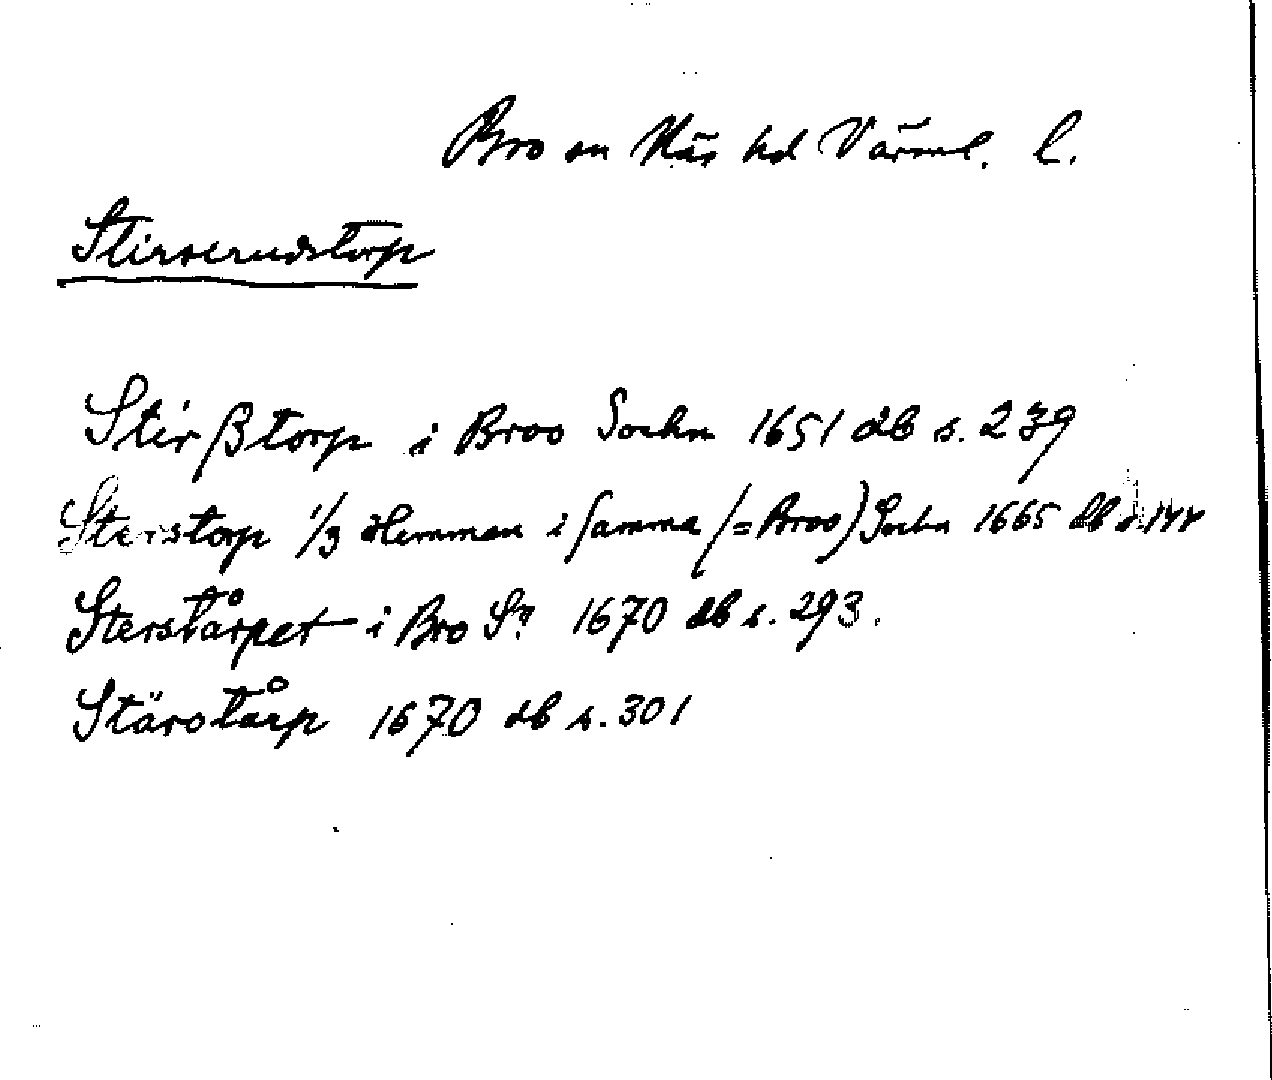 Bro sn Näs hd Värml. l.
Stirserudstorp
Stirßtorp i Broo Sochn 1651 db s. 239
Sterstorp 1/3 Hemman i samma (= Broo) Sochn 1665 db s. 144
Sterstårpet i Bro Sn 1670 db s. 293.
Stärstårp 1670 db s. 301